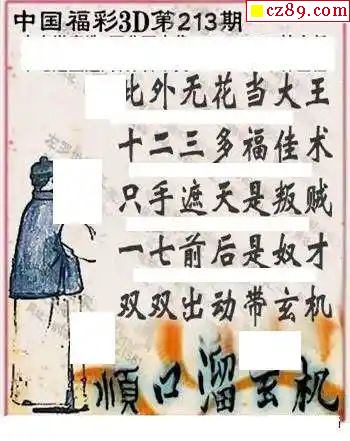 cz89.com
中国福彩3D第213期
此外无花当大王
十二三多福佳术
只手遮天是叛贼
一七前后是奴才
双双出动带玄机
顺口溜玄机